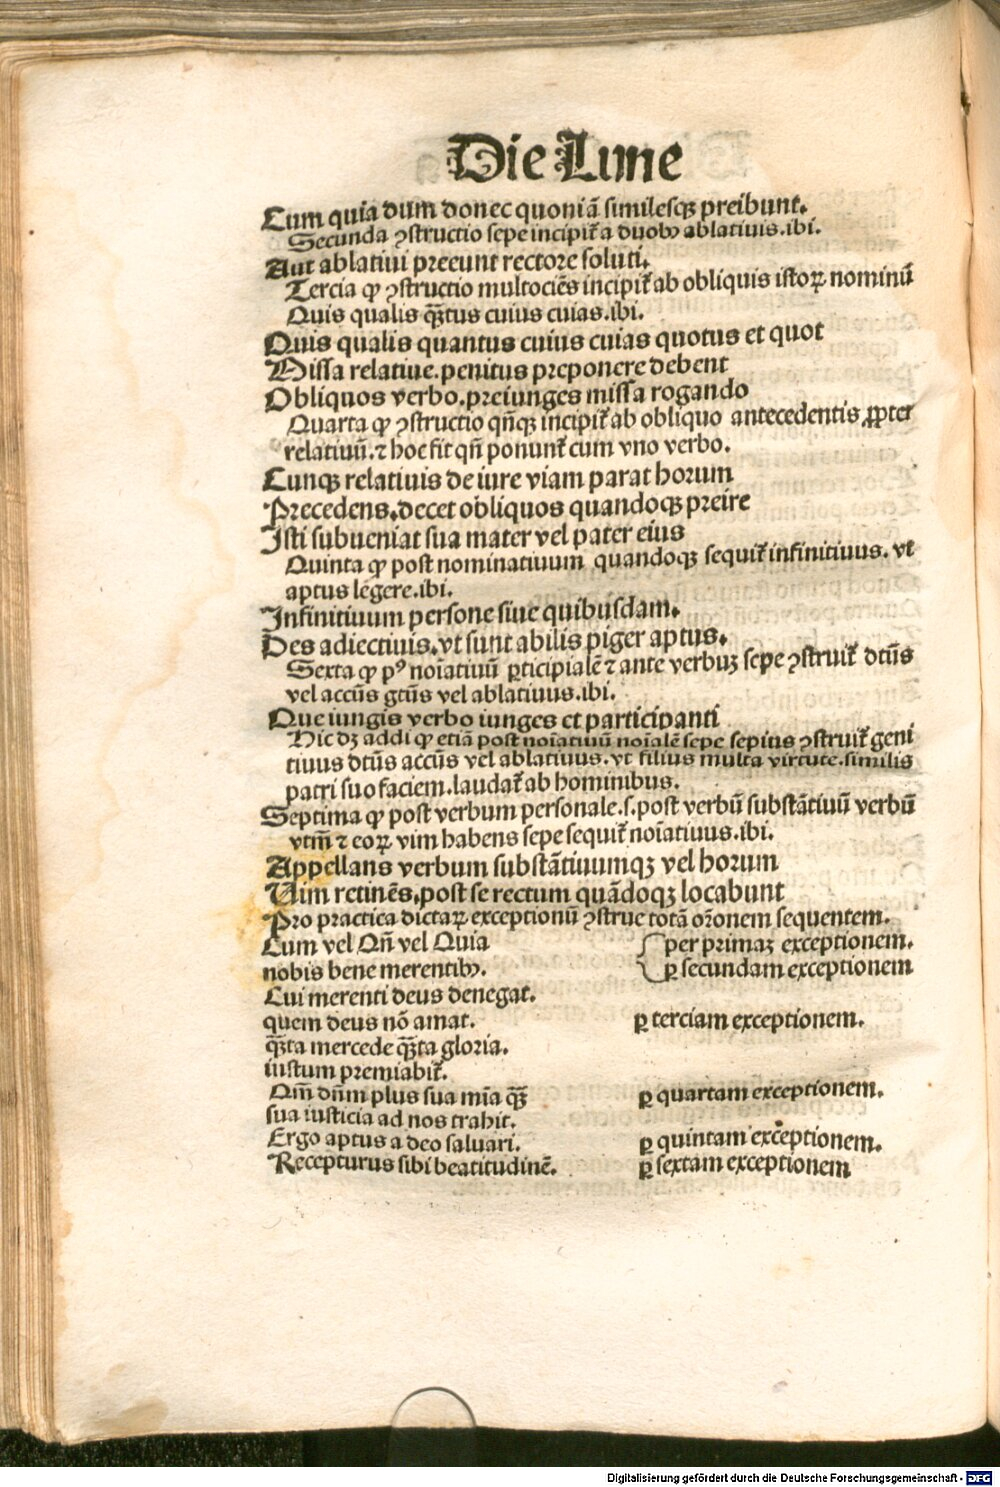 Die Lune
Cum quia dum donec quoniā similesqꝫ preibunt.
Secunda ꝯstructio sepe incipit̄ a duobꝫ ablatiuis.ibi.
Aut ablatiui preeunt rectore soluti.
Tercia qꝫ ꝯstructio multociēs incipit̄ ab obliquis istoꝝ nominū
Quis qualis qꝫ̄tus cuius cuias.ibi.
Quis qualis quantus cuius cuias quotus et quot
Missa relatiue.penitus preponere debent
Obliquos verbo.preiunges missa rogando
Quarta qꝫ ꝯstructio qn̄qꝫ incipit̄ ab obliquo antecedentis ꝓpter
relatiuū.⁊ hoc fit qn̄ ponunt̄ cum vno verbo.
Cunqꝫ relatiuis de iure viam parat horum
Precedens.decet obliquos quandoqꝫ preire
Isti subueniat sua mater vel pater eius
Quinta qꝫ post nominatiuum quandoqꝫ sequit̄ infinitiuus. vt
aptus legere.ibi.
Infinitiuum persone siue quibusdam.
Des adiectiuis.vt sunt abilis piger aptus.
Sexta qꝫ pꝰ noīatiuū ꝑticipialē ⁊ ante verbuꝫ sepe ꝯstruit̄ dtūs
vel accūs gtūs vel ablatiuus.ibi.
Que iungis verbo iunges et participanti
Hic dꝫ addi qꝫ etiā post noīatiuū noīalē sepe sepius ꝯstruit̄ geni
tiuus dtūs accūs vel ablatiuus. vt filius multa virtute.similis
patri suo faciem.laudat̄ ab hominibus.
Septima qꝫ post verbum personale.s.post verbū substātiuū verbū
vtm̄ ⁊ eoꝝ vim habens sepe sequit̄ noīatiuus.ibi.
Appellans verbum substātiuumqꝫ vel horum
Uim retinēs.post se rectum quādoqꝫ locabunt
Pro practica dictaꝝ exceptionū ꝯstrue totā or̄onem sequentem.
Cum vel Qn̄ vel Quia per primaꝫ exceptionem.
nobis bene merentibꝫ. ꝑ secundam exceptionem
Cui merenti deus denegat.
quem deus nō amat. ꝑ terciam exceptionem.
qꝫ̄ta mercede qꝫ̄ta gloria.
iustum premiabit̄.
Qm̄ dn̄m plus sua mīa qꝫ̄ ꝑ quartam exceptionem.
sua iusticia ad nos trahit.
Ergo aptus a deo saluari. ꝑ quintam exceptionem.
Recepturus sibi beatitudinē. ꝑ sextam exceptionem
Digitalisierung gefördert durch die Deutsche Forschungsgemeinschaft - DFG